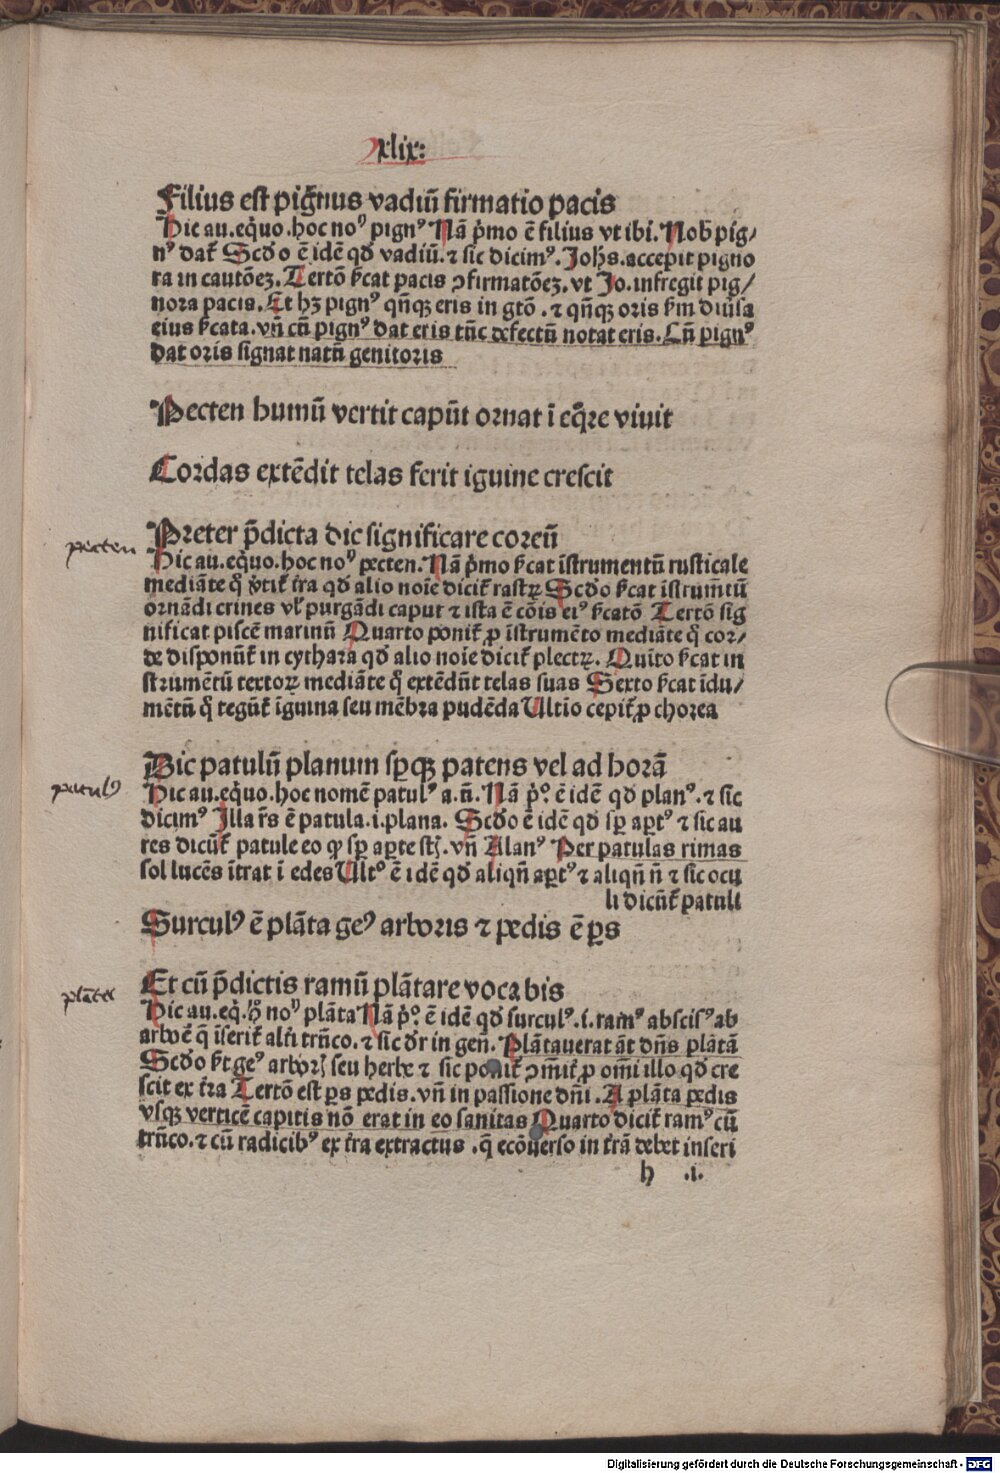 xlix:
Filius est pig̃nus vadiũ firmatio pacis
Hic au.eq̃uo.hoc noꝰ pignꝰ Nã p̃mo ẽ filius vt ibi. Nob̃ pig/
nꝰ dat̃ Scd̃o ẽ idẽ qd̃ vadiũ.⁊ sic dicimꝰ.Joh̃s.accepit pigno
ra in cautõeꝫ.Tertõ ẜcat pacis ꝯfirmatõeꝫ.vt Jo.infregit pig/
nora pacis.Et hꝫ pignꝰ qñqꝫ eris in gtõ.⁊ qñqꝫ oris ẜm diũsa
eius ẜcata.vñ cũ pignꝰ dat eris tũc defectũ notat eris.Cũ pignꝰ
dat oris signat natũ genitoris
Pecten humũ vertit capũt ornat ĩ eq̃re viuit
Cordas extẽdit telas ferit iguine crescit
Preter p̃dicta dic significare coreũ
pecten
Hic au.eq̃uo.hoc noꝰ pecten.Nã p̃mo ẜcat ĩstrumentũ rusticale
mediãte q̃ ṽtit̃ t̃ra qd̃ alio noĩe dicit̃ rastꝝ Scd̃o ẜcat ĩstrum̃tũ
ornãdi crines vl̃ purgãdi caput ⁊ ista ẽ cõis eiꝰ ẜcatõ Tertõ sig
nificat piscẽ marinũ Quarto ponit̃ ꝓ ĩstrumẽto mediãte q̃ cor/
de disponũt̃ in cythara qd̃ alio noĩe dicit̃ plectꝝ. Quĩto ẜcat in
strumẽtũ textoꝝ mediãte q̃ extẽdũt telas suas Sexto ẜcat ĩdu/
mẽtũ q̃ tegũt̃ ĩguina seu mẽbra pudẽda Ultio cepit̃ ꝓ chorea
Hic patulũ planum sꝑqꝫ patens vel ad horã
patulꝰ
Hic au.equo.hoc nomẽ patulꝰ a.ñ. Nã p̃º. ẽ idẽ qd̃ planꝰ.⁊ sic
dicimꝰ Illa r̃s ẽ patula.i.plana. Scd̃o ẽ idẽ qd̃ sꝑ aꝑtꝰ ⁊ sic au
res dicũt̃ patule eo ꝙ sꝑ aꝑte st̃.vñ Alanꝰ Per patulas rimas
sol lucẽs ĩtrat ĩ edes Ultꝰ ẽ idẽ qd̃ aliqñ aꝑtꝰ ⁊ aliqñ ñ ⁊ sic ocu
li dicũt̃ patuli
Surculꝰ ẽ plãta geꝰ arboris ⁊ pedis ẽ ꝑs
Et cũ p̃dictis ramũ plãtare vocabis
plãta
Hic au.eq̃.h̃ noꝰ plãta Nã p̃º. ẽ idẽ qd̃ surculꝰ.i.ramꝰ abscisꝰ ab
arboẽ q̃ ĩserit̃ alt̃i trũco.⁊ sic dr̃ in geñ. Plãtauerat ãt dñs plãtã
Scd̃o ẜt geꝰ arboꝝ seu herbe ⁊ sic ponit̃ ꝯm̃it̃ ꝓ om̃i illo qd̃ cre
scit ex t̃ra Tertõ est ꝑs pedis.vñ in passione dñi .A plãta pedis
vsqꝫ verticẽ capitis nõ erat in eo sanitas Quarto dicit̃ ramꝰ cũ
trũco.⁊ cũ radicibꝰ ex t̃ra extractus .q̃ ecõũerso in t̃rã debet inseri
h .i.
Digitalisierung gefördert durch die Deutsche Forschungsgemeinschaft - DFG